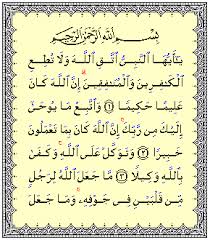 بِسْمِ ٱللَّهِ ٱلرَّحْمَٰنِ ٱلرَّحِيمِ
يَٰٓأَيُّهَا ٱلنَّبِىُّ ٱتَّقِ ٱللَّهَ وَلَا تُطِعِ
ٱلْكَٰفِرِينَ وَٱلْمُنَٰفِقِينَ إِنَّ ٱللَّهَ كَانَ
عَلِيمًا حَكِيمًا ١ وَٱتَّبِعْ مَا يُوحَىٰٓ
إِلَيْكَ مِن رَّبِّكَ إِنَّ ٱللَّهَ كَانَ بِمَا تَعْمَلُونَ
خَبِيرًا ٢ وَتَوَكَّلْ عَلَى ٱللَّهِ وَكَفَىٰ
بِٱللَّهِ وَكِيلًا ٣ مَّا جَعَلَ ٱللَّهُ لِرَجُلٍ
مِّن قَلْبَيْنِ فِى جَوْفِهِۦ وَمَا جَعَلَ